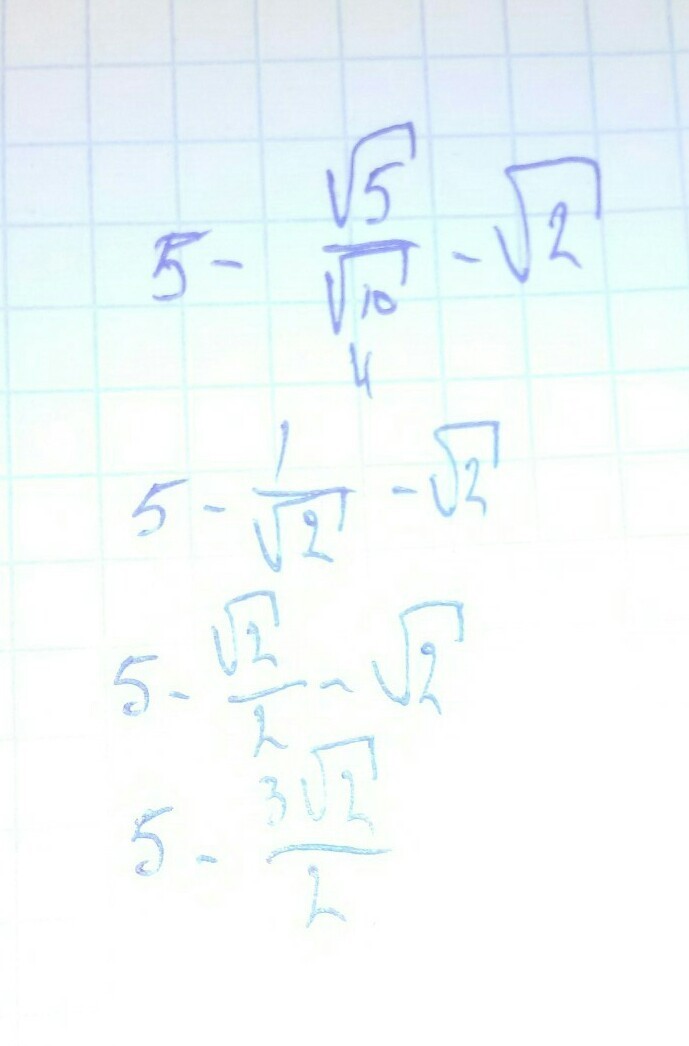 5 - √5/√10 - √2
4
5 - 1/√2 - √2
5 - √2/2 - √2
5 - 3√2/2